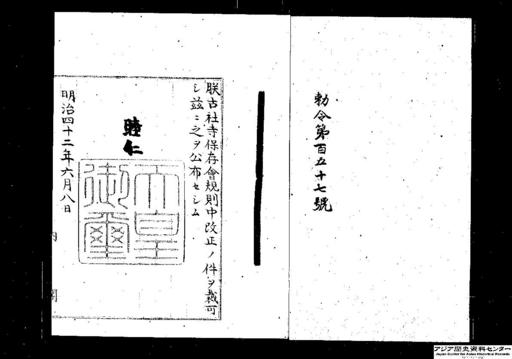 勅令第百五十七號
朕古社寺保存會規則中改正ノ件ヲ裁可
シ茲ニ之ヲ公布セシム
睦仁
天皇御璽
明治四十二年六月八日
内閣
アジア歴史資料センター
Japan Center for Asian Historical Records